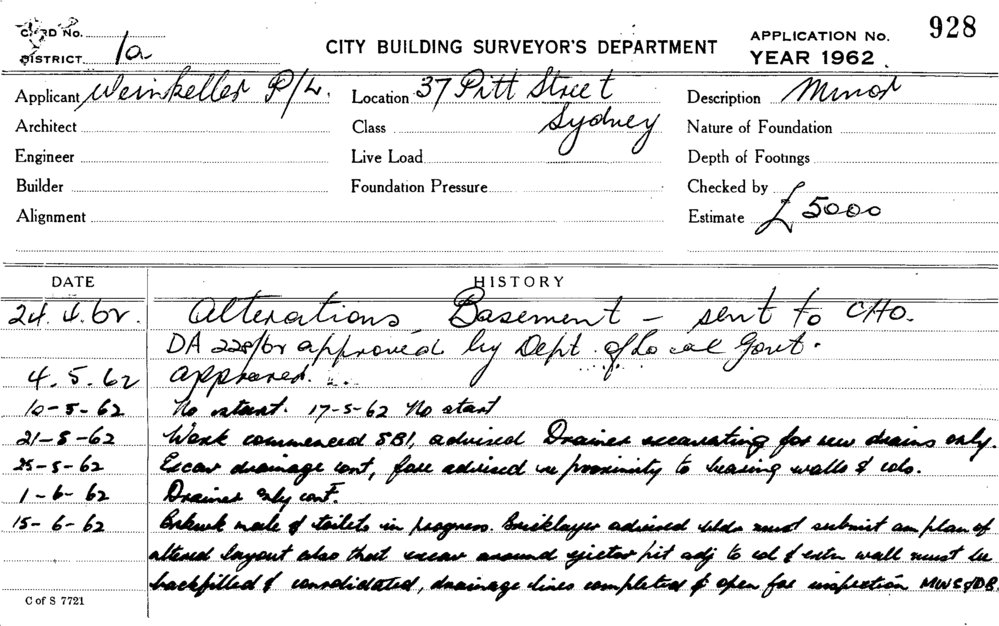 CARD No.
DISTRICT 1a
CITY BUILDING SURVEYOR'S DEPARTMENT
APPLICATION No. 928
YEAR 1962.
Applicant Weinkeller P/L. Location 37 Pitt Street Description Minor
Architect Class Sydney Nature of Foundation
Engineer Live Load Depth of Footings
Builder Foundation Pressure Checked by
Alignment Estimate £5000
DATE HISTORY
24.4.62. Alterations Basement - sent to CHO.
DA 228/62 approved by Dept. of Local Govt.
4.5.62 approved.
10-5-62 No start. 17-5-62 No start
21-5-62 Work commenced SBI, advised Drainer excavating for new drains only.
25-5-62 Excav drainage cont, fore advised in proximity to bearing walls & cols.
1-6-62 Drainer only cont.
15-6-62 Brkwk male & toilets in progress. Bricklayer advised bldr must submit am plan of
altered layout also that excav around ejector pit adj to col & extn wall must be
backfilled & consolidated, drainage lines completed & open for inspection MWS&DB.
C of S 7721